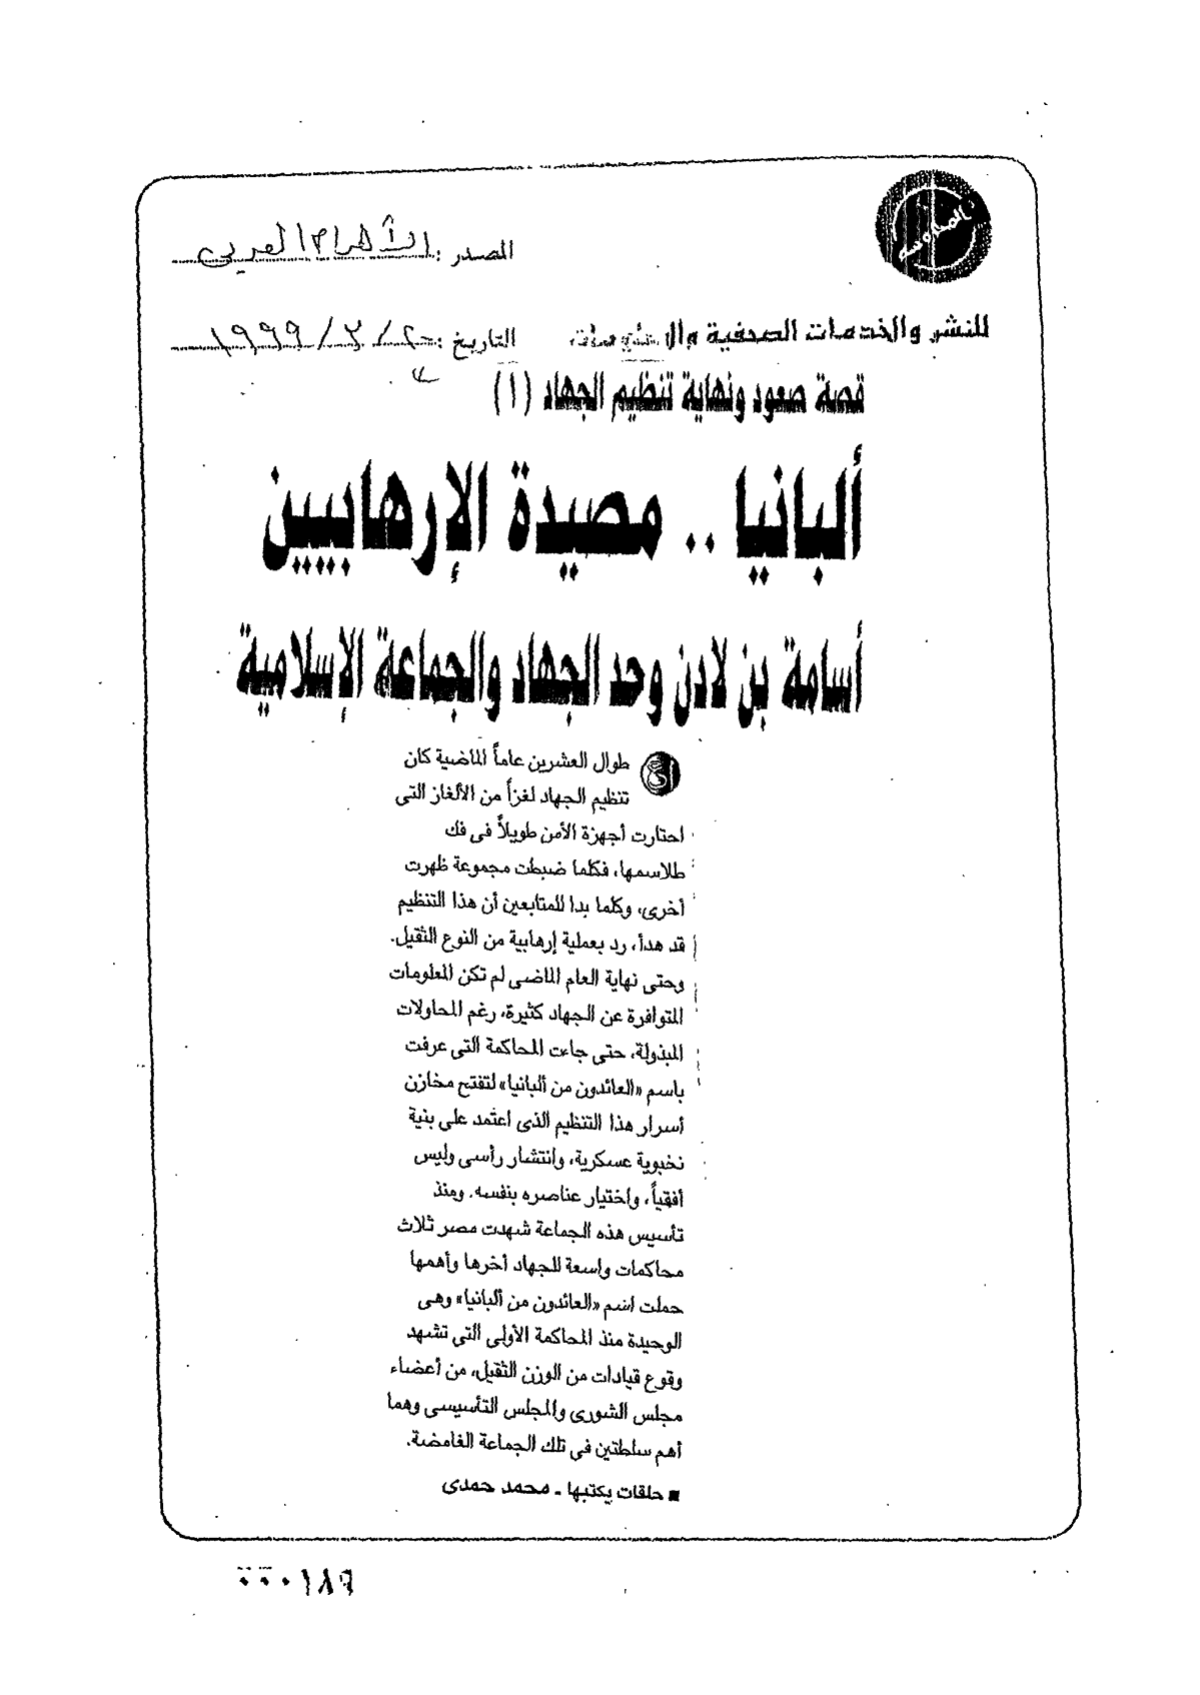 المصدر : الأهرام العربى
للنشر والخدمات الصحفية والمعلومات
التاريخ : ٢٠ / ٣ / ١٩٩٩
قصة صعود ونهاية تنظيم الجهاد (١)
ألبانيا .. مصيدة الإرهابيين
أسامة بن لادن وحد الجهاد والجماعة الإسلامية
طوال العشرين عاماً الماضية كان
تنظيم الجهاد لغزاً من الألغاز التى
احتارت أجهزة الأمن طويلاً فى فك
طلاسمها، فكلما ضبطت مجموعة ظهرت
أخرى، وكلما بدا للمتابعين أن هذا التنظيم
قد هدأ، رد بعملية إرهابية من النوع الثقيل.
وحتى نهاية العام الماضى لم تكن المعلومات
المتوافرة عن الجهاد كثيرة، رغم المحاولات
المبذولة، حتى جاءت المحاكمة التى عرفت
باسم «العائدون من ألبانيا» لتفتح مخازن
أسرار هذا التنظيم الذى اعتمد على بنية
نخبوية عسكرية، وانتشار رأسى وليس
أفقياً، واختيار عناصره بنفسه. ومنذ
تأسيس هذه الجماعة شهدت مصر ثلاث
محاكمات واسعة للجهاد أخرها وأهمها
حملت اسم «العائدون من ألبانيا» وهى
الوحيدة منذ المحاكمة الأولى التى تشهد
وقوع قيادات من الوزن الثقيل، من أعضاء
مجلس الشورى والمجلس التأسيسى وهما
أهم سلطتين في تلك الجماعة الغامضة.
■ حلقات يكتبها - محمد حمدى
٠٠٠١٨٩